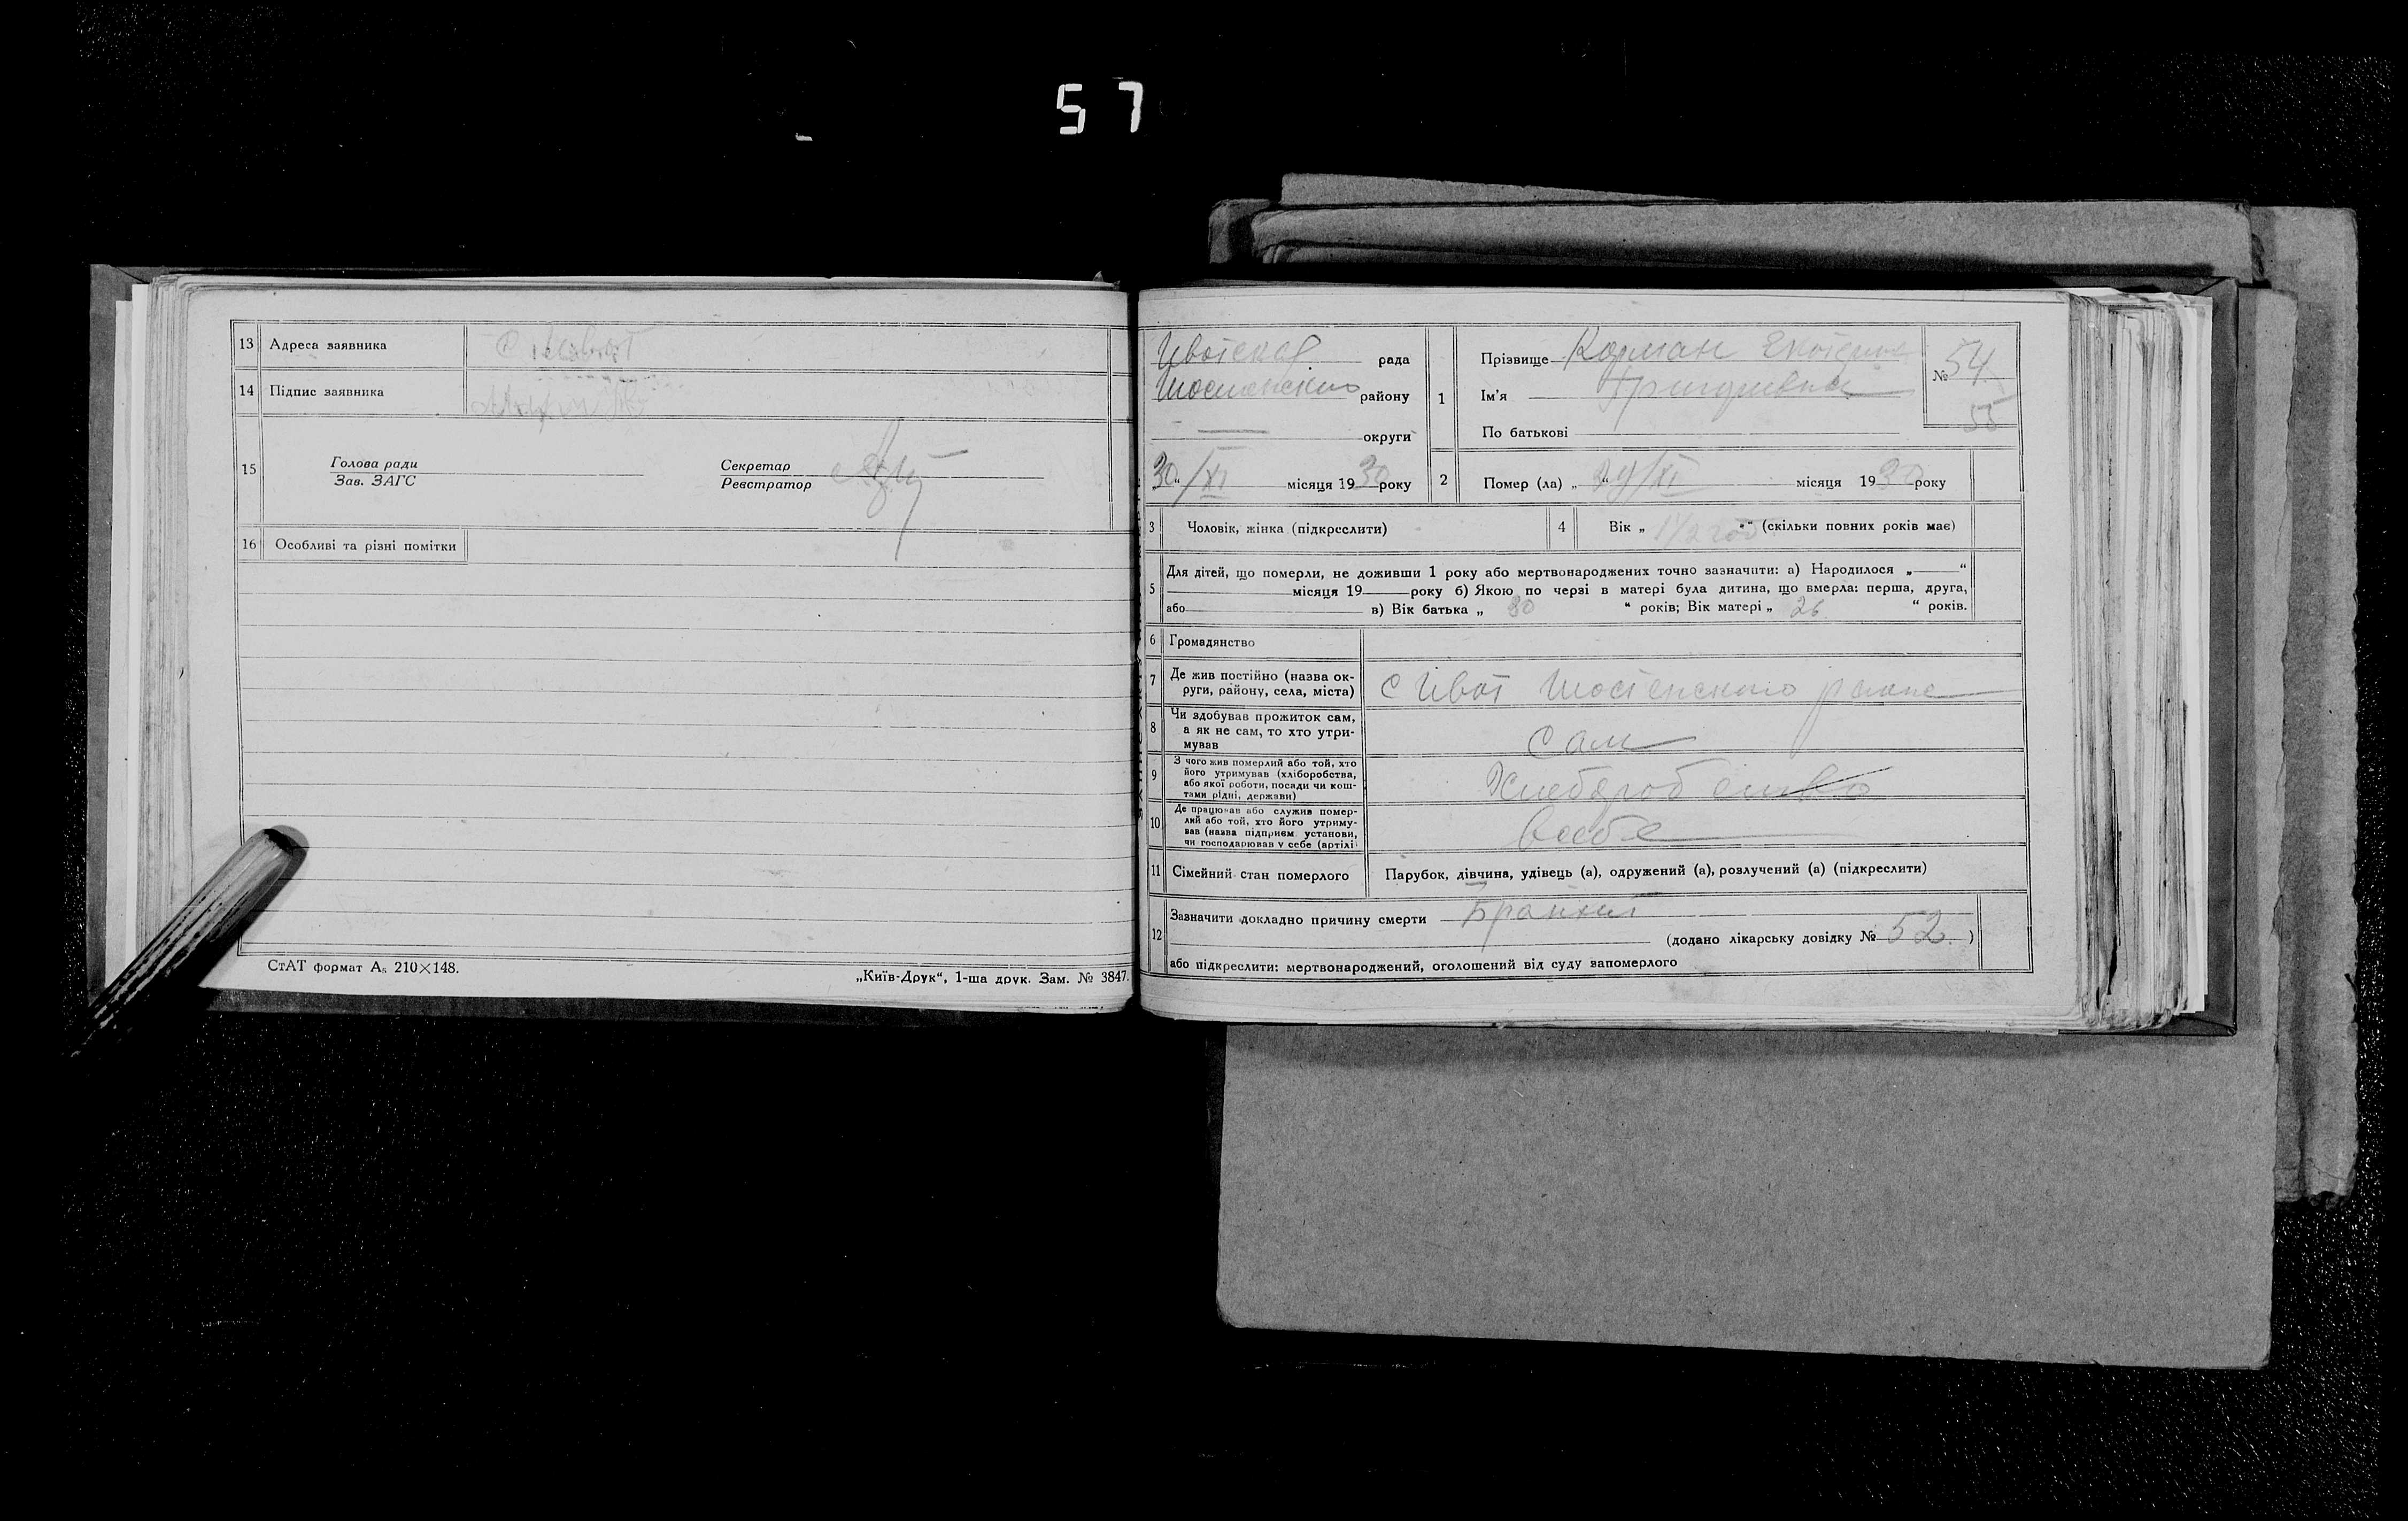 57
13 Адреса заявника С Ивот
14 Підпис заявника
15 Голова ради
Зав. ЗАГС
Секретар
Реєстратор
16 Особливі та різні помітки
СтАТ формат А₅ 210×148.
„Київ-Друк“, 1-ша друк. Зам. № 3847.
Ивотская рада
Шостенского району
округи
30 “/XI місяця 1930 року
1 Прізвище Корман Екатерина
Ім'я Григоривна
По батькові
№ 54
55
2 Помер (ла) „ 29/XI місяця 1930 року
3 Чоловік, жінка (підкреслити)
4 Вік „ 1 1/2 год “ (скільки повних років має)
5 Для дітей, що померли, не доживши 1 року або мертвонароджених точно зазначити: а) Народилося „ “
місяця 19 року б) Якою по черзі в матері була дитина, що вмерла: перша, друга,
або в) Вік батька „ 30 “ років; Вік матері „ 26 “ років.
6 Громадянство
7 Де жив постійно (назва ок-
руги, району, села, міста) С Ивот Шостенского
8 Чи здобував прожиток сам,
а як не сам, то хто утри-
мував Сам
9 З чого жив померлий або той, хто
його утримував (хліборобства,
або якої роботи, посади чи кош-
тами рідні, держави) Хлеборобство
10 Де працював або служив помер-
лий або той, хто його утриму-
вав (назва підприєм. установи,
чи господарював у себе (артілі) всебе
11 Сімейний стан померлого Парубок, дівчина, удівець (а), одружений (а), розлучений (а) (підкреслити)
12 Зазначити докладно причину смерти Бранхит
(додано лікарську довідку № 52. )
або підкреслити: мертвонароджений, оголошений від суду запомерлого